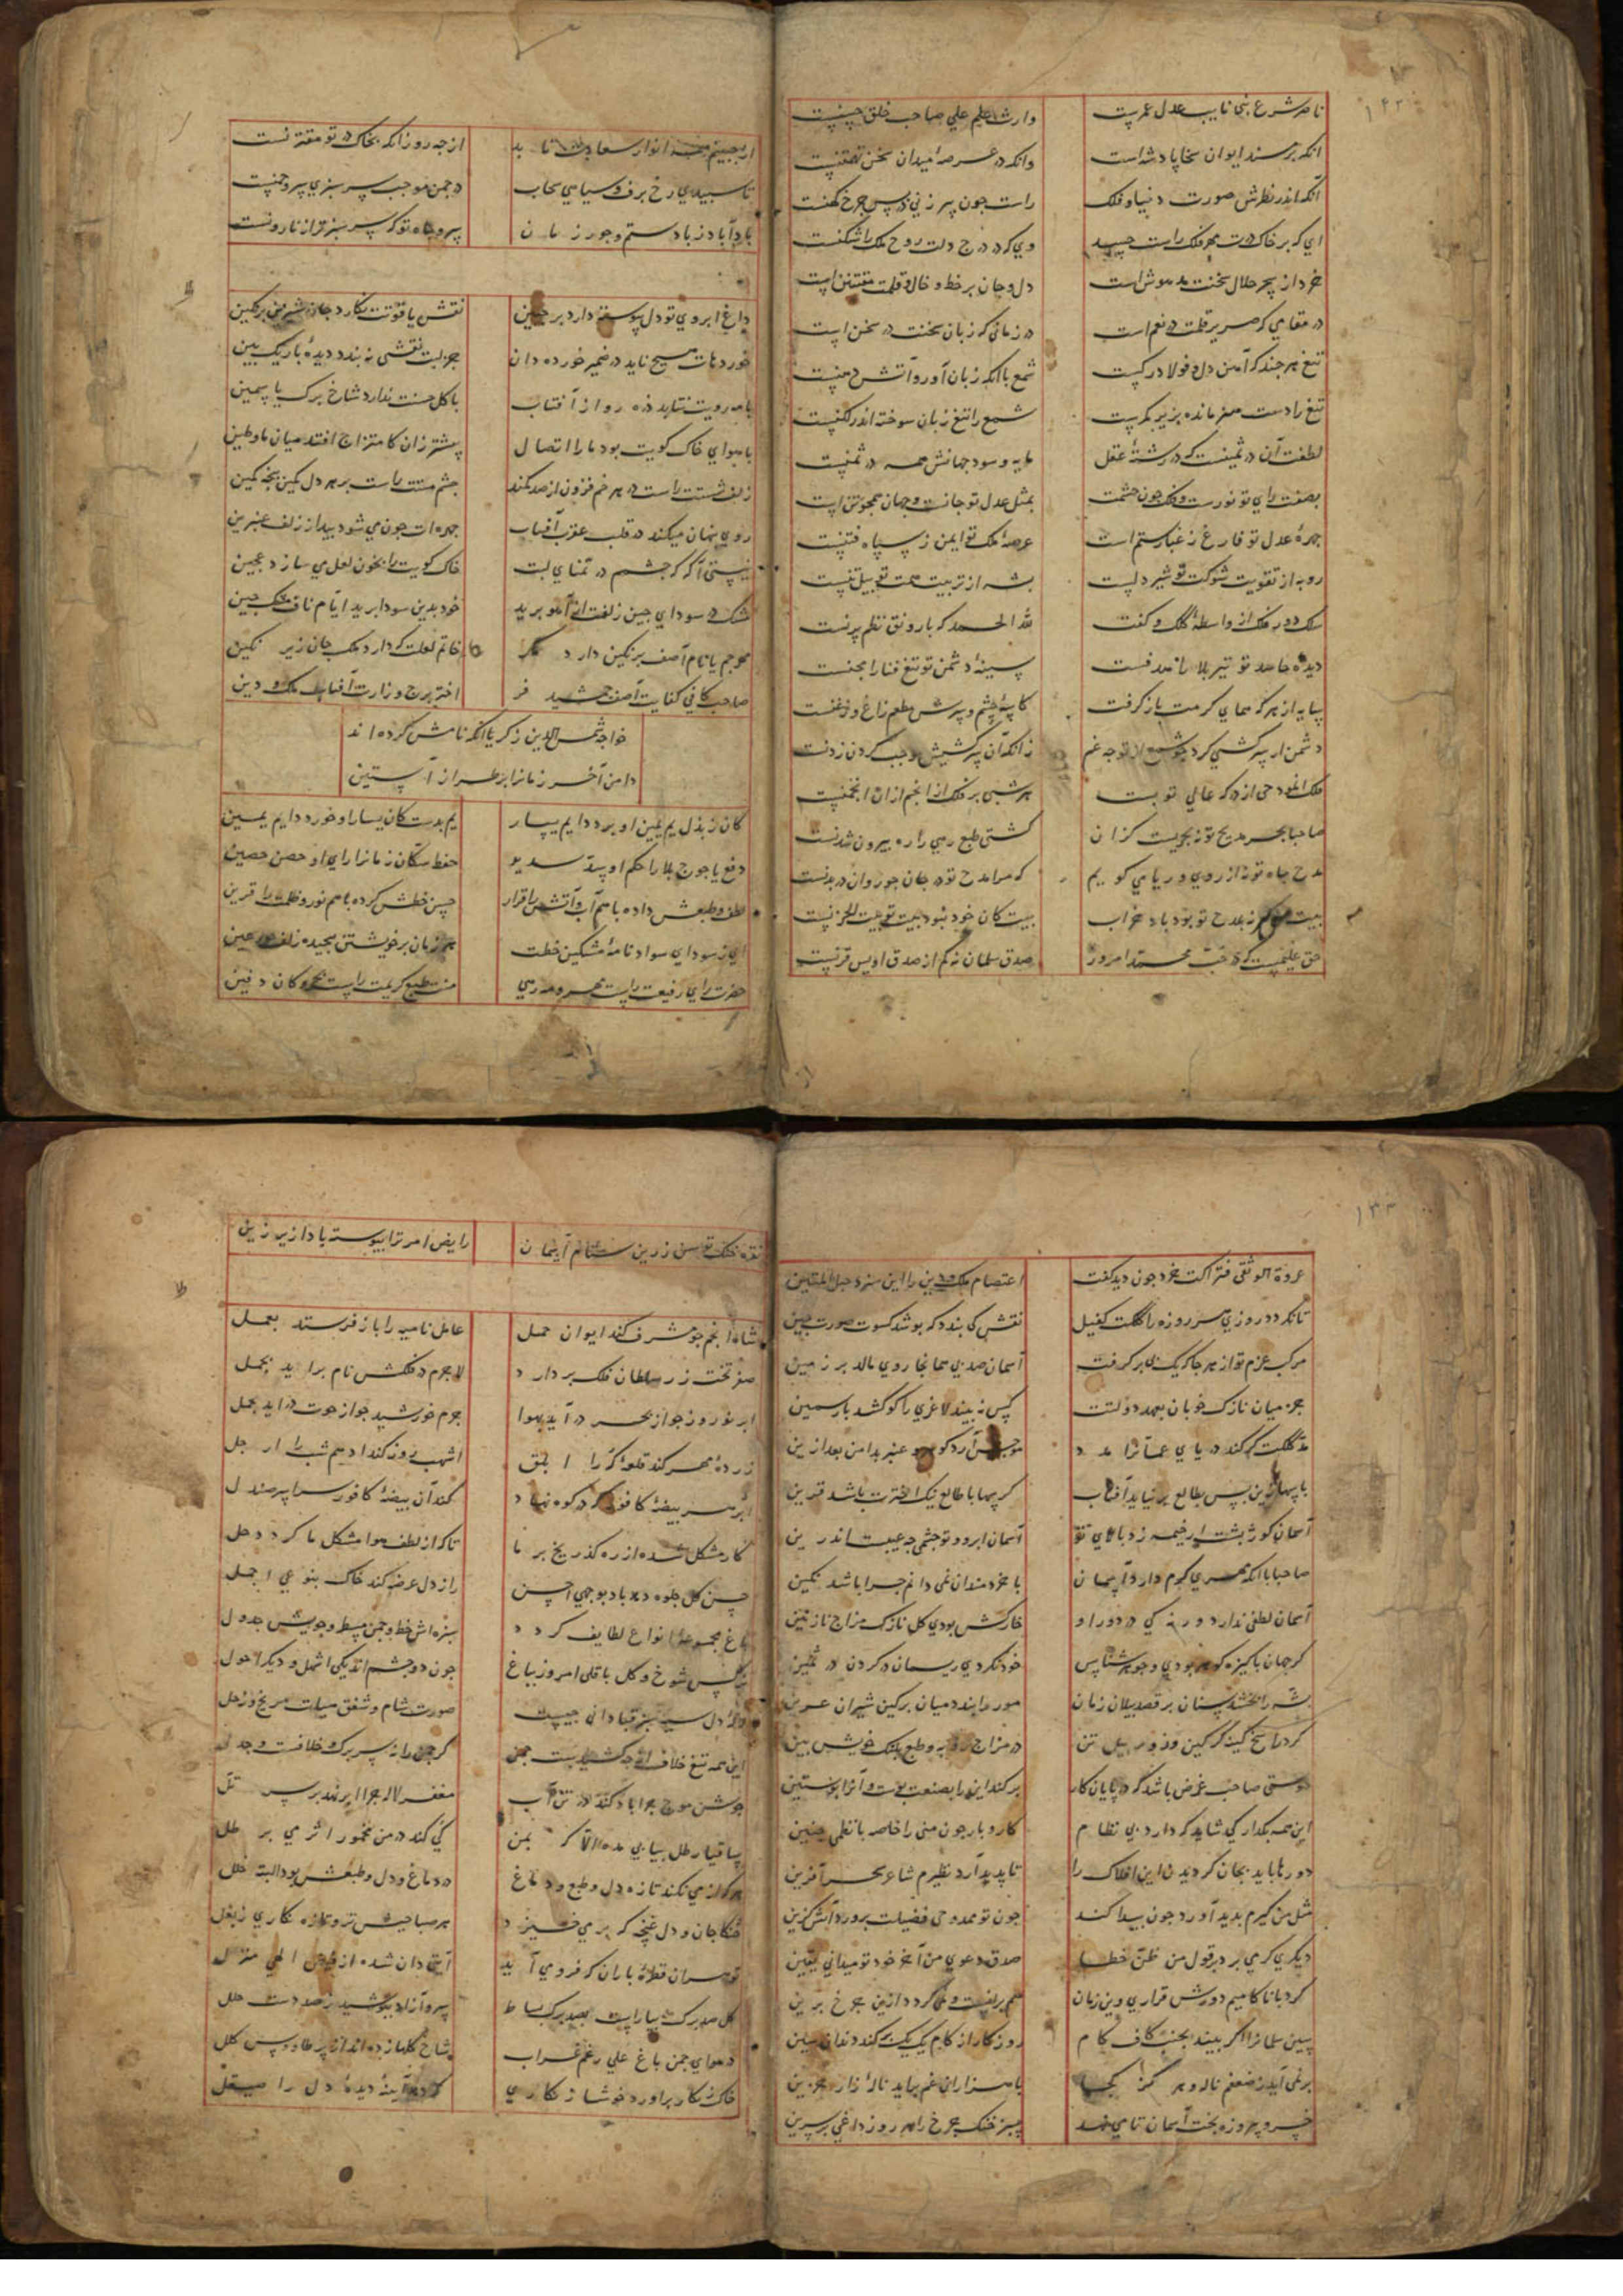 ناصر شرع نبی نایب عدل عمرست وارث علم علی صاحب خلق حسنست
آنکه بر مسند ایوان سخا پادشاست وانکه در عرصه میدان سخن تهمتنست
آنکه اندر نظرش صورت دنیا و فلک راست چون پیر زنی در پس چرخ کهنست
ای که بر خاک درت مهر فلک راست حسد وی که در درج دلت روح ملک را سکنست
خرد از سحر حلال سخنت مدهوش است دل و جان بر خط و خال و قلمت مفتتن است
در مقامی که صریر قلمت در نغم است در زمانی که زبان سخنت در سخن است
تیغ هر چند که آهن دل و فولاد رکست شمع با آنکه زبان آور و آتش دهنست
تیغ را دست هنر مانده بزیر کمرست شمع را تیغ زبان سوخته اندر لکنست
لطفت آن در ثمینست که در رشته عقل مایه و سود جهانش همه در ثمنست
بصفت رای تو نورست و فلک چون چشمت بمثل عدل تو جانست و جهان همچو تن است
چهره عدل تو فارغ ز غبار ستم است عرصه ملک تو ایمن ز سپاه فتنست
روبه از تقویت شوکت تو شیر دلست پشه از تربیت همت تو پیل تنست
سلک دور فلک از واسطه کلک و کفت لله الحمد که با رونق نظم پرنست
دیده حاسد تو تیر بلا را هدفست سینه دشمن تو تیغ فنا را مجنست
سایه از هر که همای کرمت باز گرفت کاسه چشم و سرش مطعم زاغ و زغنست
دشمن ار سر کشی کرد چو شمع از تو چه غم زانکه آن سر کشیش موجب گردن زدنست
هر شبی بر فلک از انجم ازان انجمنست
صاحبا بحر مدیح تو نه بحریست کزان کشتی طبع رهی را ره بیرون شدنست
مدح جاه تو نه از روی و ریا می گویم که مرا مدح تو در جان چو روان در بدنست
بیت کان خود نبود بیت تو بیت الحزنست
حق علیمست که در حب محمد امروز صدق سلمان نه کم از صدق اویس قرنست
از جبین همه انوار سعادت تابد از چه رو زانکه بخاک در تو مقترنست
تا سپیدی رخ برف و سیاهی سحاب در چمن موجب سر سبزی سرو چمنست
باد آباد ز باد ستم و جور زمان سرو جاه تو که سر سبز تر از نارونست
داغ ابروی تو دل پیوسته دارد بر جبین نقش یاقوتت نگارد جان شیرین بر نگین
خورد دهانت هیچ ناید در ضمیر خورده دان جز لبت نقشی نه بندد دیده باریک بین
با مه رویت نتابد ذره رو از آفتاب با گل حسنت ندارد شاخ برگ یاسمین
با هوای خاک کویت بود ما را اتصال پیشتر زان کامتزاج افتد میان ما و طین
زلف شستت راست در هر خم فزون از صد کمند چشم مستت راست بر هر دل کمین بیخه کمین
روی پنهان میکند در قلب عقرب آفتاب چهره ات چون می شود پیدا ز زلف عنبرین
نیستی آگه که چشمم در تمنای لبت خاک کویت را بخون لعل می سازد عجین
مشک در سودای چین زلفت از آهو برید خود بدین سودا برید ایام ناف مشک چین
مهر جم یا نام آصف بر نگین دارد مگر خاتم لعلت که دارد ملک جان زیر نگین
صاحب کافی کفایت آصف جمشید فر اختر برج وزارت آفتاب ملک و دین
خواجه شمس الدین زکریا آنکه نامش کرده اند
دامن آخر زمان را بر طراز آستین
کان ز بذل یم یمین او برد دایم یسار یم بدست کان یسار او خورد دایم یمین
دفع یاجوج بلا را حکم او سد سدید حفظ سکان زمان را رای او حصن حصین
لطف طبعش داده با هم آب و آتش را قرار حسن خطش کرده با هم نور و ظلمت را قرین
ای ز سودای سواد نامه مشکین خطت هر زمان بر خویشتن پیچیده زلف حور عین
حضرت رای رفیعت راست مهر و مه رهی منت طبع کریمت راست بحر و کان دفین
عروة الوثقی فتراکت خرد چون دید گفت اعتصام ملک و دین را این سزد حبل المتین
تا نگردد روزی سر روزه را کلکت کفیل نقش کی بندد که پوشد کسوت صورت جنین
مرکب عزم تو از هر جا که یک پی بر گرفت آسمان صد پی همانجا روی مالد بر زمین
جز میان نازک خوبان بعهد دولتت کس نه بیند لاغری را کو کشد بار سمین
مد کلکت گر کند دریای عمان را مدد موجش آرد گوهر و عنبر بدامن بعد ازین
با سهالزین پس بطالع بر نیاید آفتاب گر سها با طالع نیک اخترت باشد قرین
آسمان کوژ پشت ار خیمه زد بالای تو آسمان ابرو و تو چشمی چه عیبست اندرین
صاحبا با آنکه مهری گرم دارد آسمان با خردمندان نمی دانم چرا باشد بکین
آسمان لطفی ندارد ورنه کی در دور او خارکش بودی گل نازک مزاج نازنین
گر جهان پاکیزه گوهر بودی و جوهر شناس خود نکردی ریسمان در گردن در ثمین
پشه را بخشد سنان بر قصد پیلان زمان مور را بندد میان بر کین شیران عرین
دوستی صاحب غرض باشد که در پایان کار بر کند این را بصنعت پوست و آن را پوستین
این همه بگذار کی شاید که دارد بی نظام کار و بار چون منی را خاصه با نظمی چنین
دورها باید بجان گردیدن این افلاک را تا پدید آرد نظیرم شاعر سحر آفرین
مثل من گیرم پدید آورد چون پیدا کند چون تو ممدوحی فضیلت پرور دانش گزین
دیگری گر می برد بر قول من ظن خطا صدق دعوی من آخر خود تو میدانی یقین
پیش سلمان را اگر بیند بجنب کاف کام روزگار از کام یک یک بر کند دندان سین
بر نمی آید ز ضعفم ناله و هر گز کجا با هزاران غم برآید ناله زار حزین
خسرو پیروزه تخت آسمان تا می نهد سبز خنگ چرخ را هر روز داغی بر سرین
نقره خنگ توسن زرین ستام آسمان رایض امر ترا پیوسته بادا زیر زین
شاه انجم چو مشرف کند ایوان حمل عامل نامیه را باز فرستد بعمل
صفر تخت زر سلطان فلک بردارد لاجرم در فلکش نام برآید بحمل
ابر نوروز چو از بحر در آید بهوا جرم خورشید چو از حوت در آید بحمل
زرده مهر کند قله گه را ابلق اشهب روز کند ادهم شب را ارجل
ابر هر بیضه کافور که در کوه نهاد کند آن بیضه کافور سراسر صندل
کار مشکل شده از ره گذر یخ بر ما تا که از لطف هوا مشکل ما گردد حل
حسن گل جلوه دهد باد بوجهی احسن راز دل عرضه کند خاک بنوعی اجمل
باغ مجموعه انواع لطایف گردد سبزه اش خط و چمن مسطر و جویش جدول
نرگس شوخ و گل باقلی امروز بباغ چون دو چشم اند یکی اشهل و دیگر احول
لاله دل سیه سبز قبا دانی چیست صورت شام و شفق هیات مریخ و زحل
این همه تیغ خلاف از چه کشیدست چمن گر چمن را نه سر برگ خلافست و جدل
جوشن موج چرا باد کند در تن آب مغفر لاله چرا ابر نهد بر سر تل
ساقیا رطل بیاپی مده الا که بمن کی کند در من مخمور اثر می بر طل
هر که از می نکند تازه دل و طبع و دماغ در دماغ و دل و طبعش بود البته خلل
گل صد برگ بیاراست بصد برگ بساط سرو آزاد بپوشید ز صد دست حلل
در هوای چمن باغ علی رغم غراب شاخ گلها زده اند از پر طاووس کلل
خاک زنگار برآورد خوشا زنگاری که در آینه دیده دل را صیقل